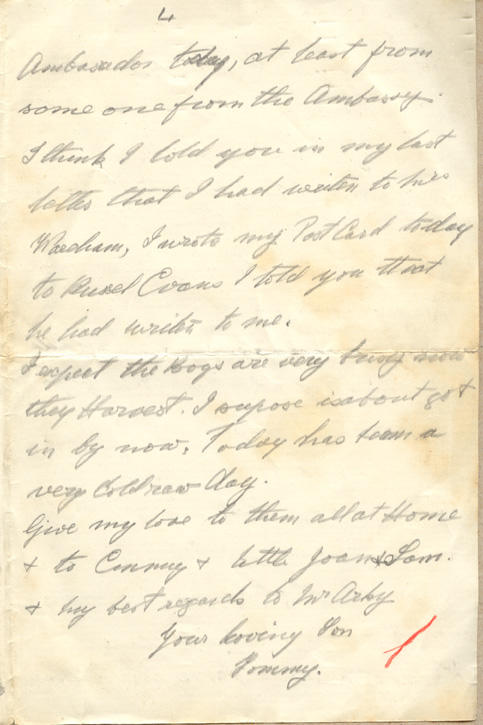 4
Ambasador today, at least from
some one from the Ambassy.
I think I told you in my last
letter that I had writen to Mrs
Wareham, I wrote my Post Card today
to Russel Evans I told you that
he had writen to me.
I expect the Boys are very busy now
they Harvest. I supose is about got
in by now. Today has been a
very Cold raw day.
Give my love to them all at Home
+ to + little Joan & Sam.
+ my best regards to Mr Arby
Your loving Son
Tommy.